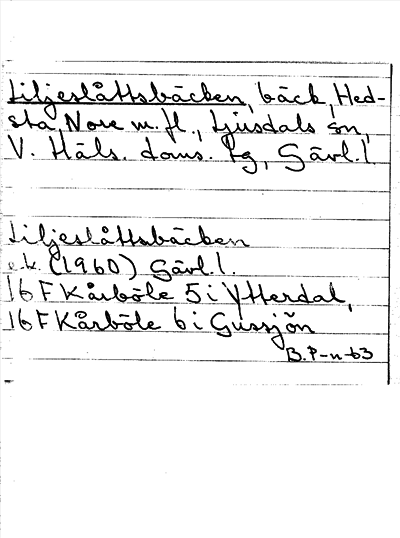 Liljeslåttsbäcken, bäck, Hed-
sta, Nore m. fl., Ljusdals sn,
V. Häls. doms. tg, Gävl. l
Liljeslåttsbäcken
e.k. (1960) Gävl. l.
16 F Kårböle 5 i Ytterdal,
16 F Kårböle 6 i Gussjön
B. P-n -63